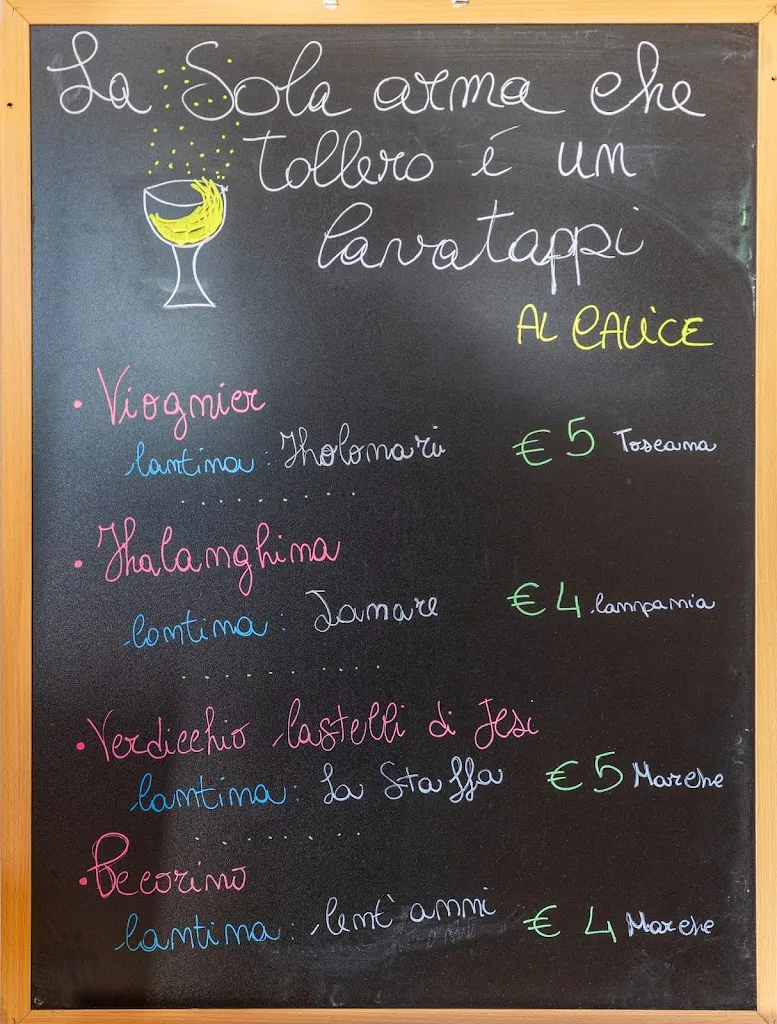 La Sola arma che
tollero é un
cavatappi
AL CALICE
• Viognier
Cantina: Folonari € 5 Toscana
• Falanghina
Cantina: Janare € 4 Campania
• Verdicchio Castelli di Jesi
Cantina: La Staffa € 5 Marche
• Pecorino
Cantina: Cent'anni € 4 Marche